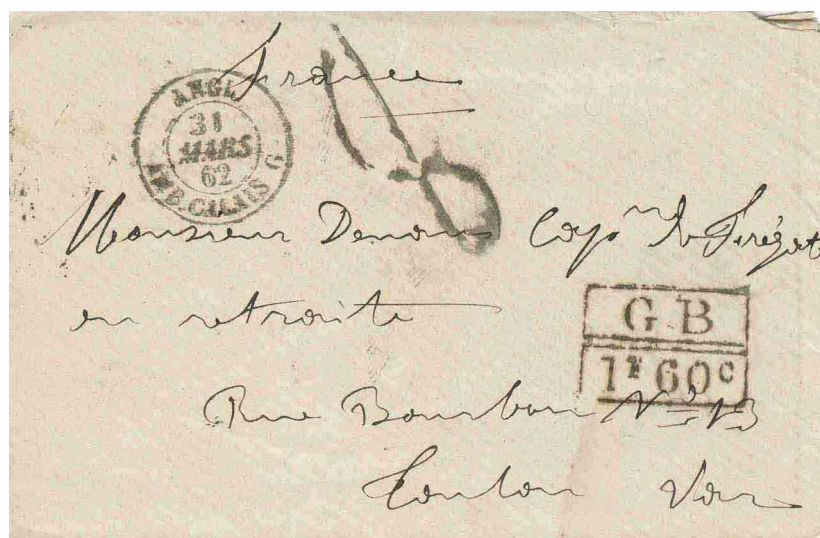 France
ANGL.
31
MARS
62
AMB. CALAIS G
8
Monsieur Denans Cap.ne de Frégate
en retraite
G B
1F 60c
Rue Bourbon No 13
Toulon Var